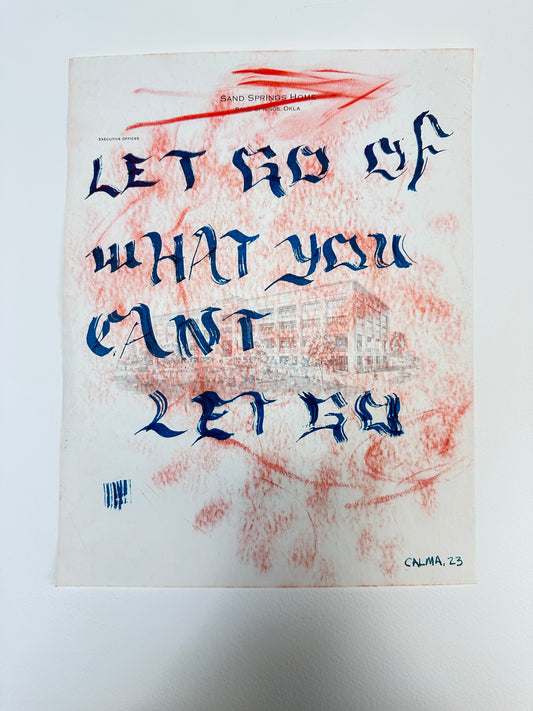 SAND SPRINGS HOME
SAND SPRINGS, OKLA.
EXECUTIVE OFFICES
LET GO OF
WHAT YOU
CANT
LET GO
CALMA, 23